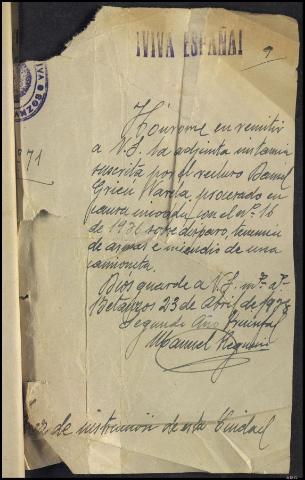 ¡VIVA ESPAÑA!
9
Hónrome en remitir
a V.S. la adjunta instancia
suscrita por el recluso Daniel
Grien Varela, procesado en
causa incoada con el nº 16
de 1936 sobre disparo tenencia
de armas e incendio de una
camioneta.
Dios guarde a V.S. mˢ aˢ
Betanzos 23 de Abril de
Segundo Año Triunfal
Manuel
de instrucción de esta Ciudad
71